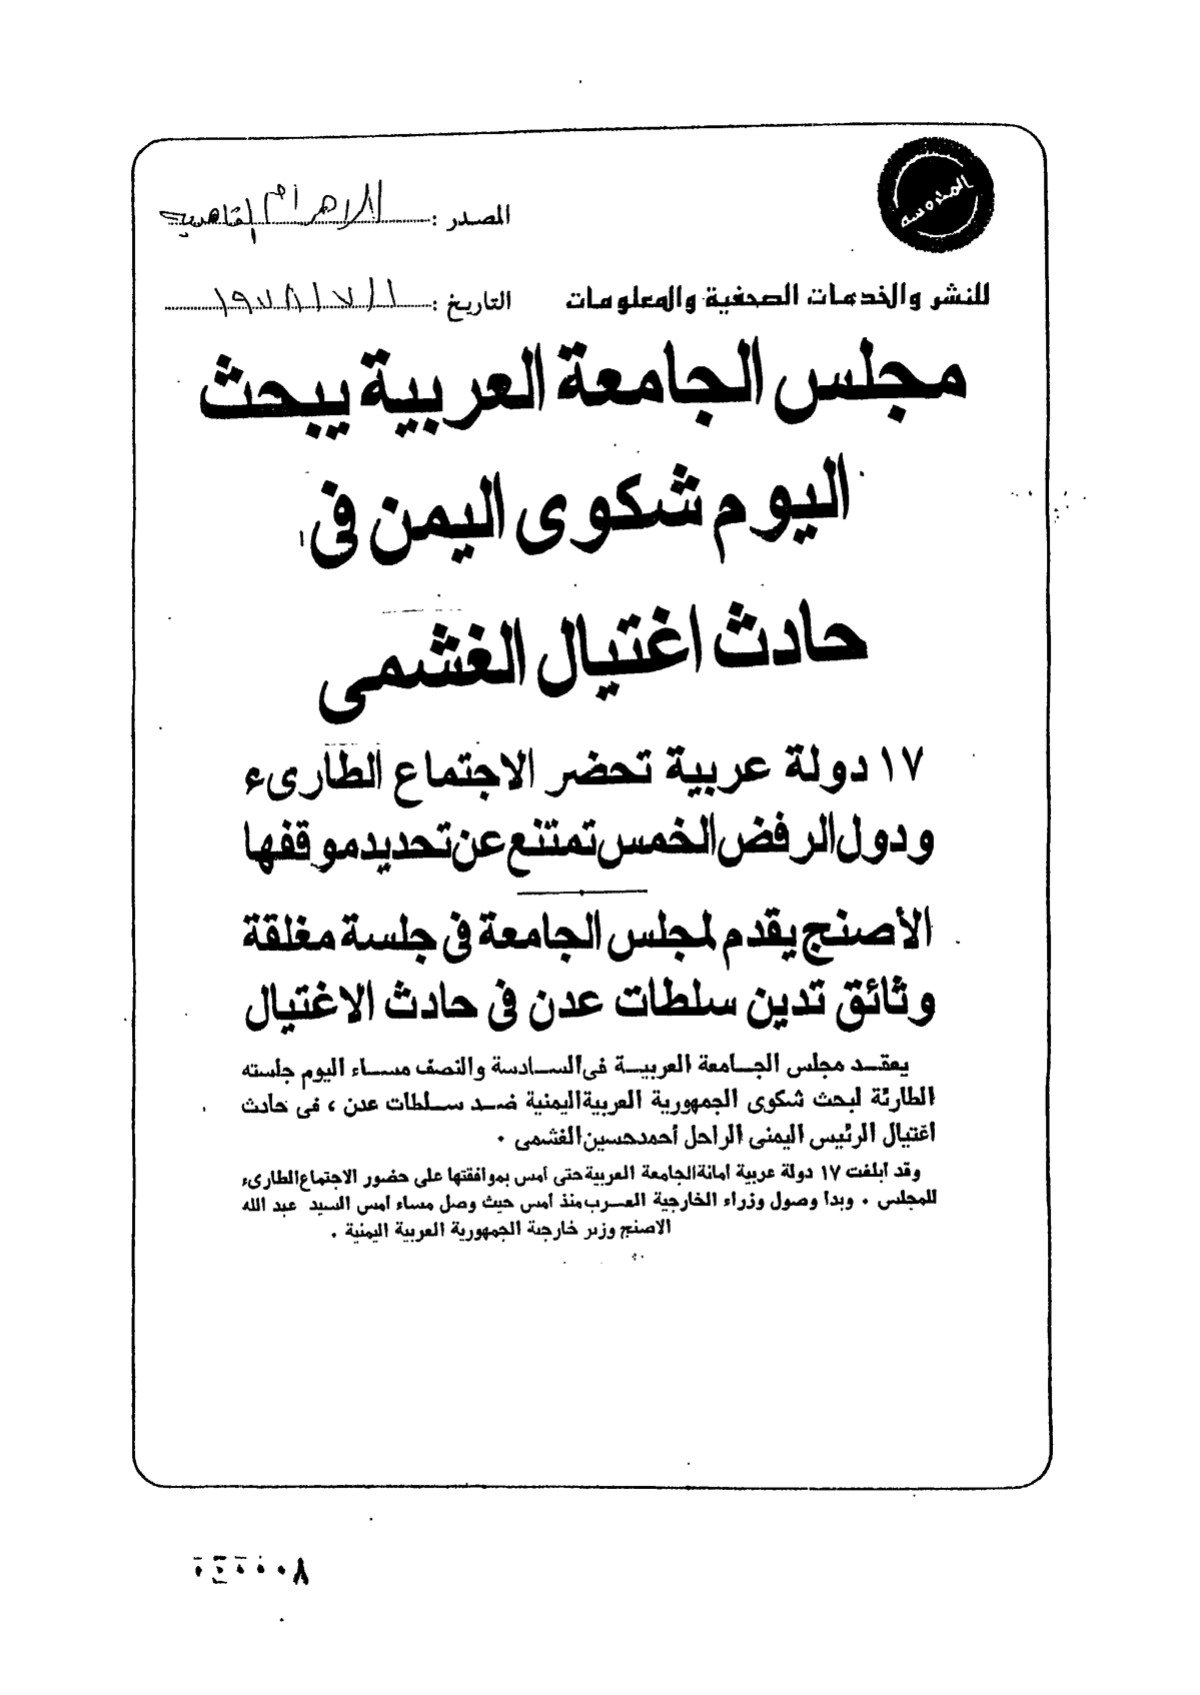 المصدر : الاهرام القاهرية
للنشر والخدمات الصحفية والمعلومات
التاريخ : ١٩٧٨/٧/١
مجلس الجامعة العربية يبحث
اليوم شكوى اليمن فى
حادث اغتيال الغشمى
١٧ دولة عربية تحضر الاجتماع الطارىء
ودول الرفض الخمس تمتنع عن تحديد موقفها
الأصنج يقدم لمجلس الجامعة فى جلسة مغلقة
وثائق تدين سلطات عدن فى حادث الاغتيال
يعقد مجلس الجامعة العربية فى السادسة والنصف مساء اليوم جلسته
الطارئة لبحث شكوى الجمهورية العربية اليمنية ضد سلطات عدن ، فى حادث
اغتيال الرئيس اليمنى الراحل أحمد حسين الغشمى .
وقد ابلغت ١٧ دولة عربية امانة الجامعة العربية حتى أمس بموافقتها على حضور الاجتماع الطارىء
للمجلس . وبدا وصول وزراء الخارجية العرب منذ أمس حيث وصل مساء امس السيد عبد الله
الاصنج وزير خارجية الجمهورية العربية اليمنية .